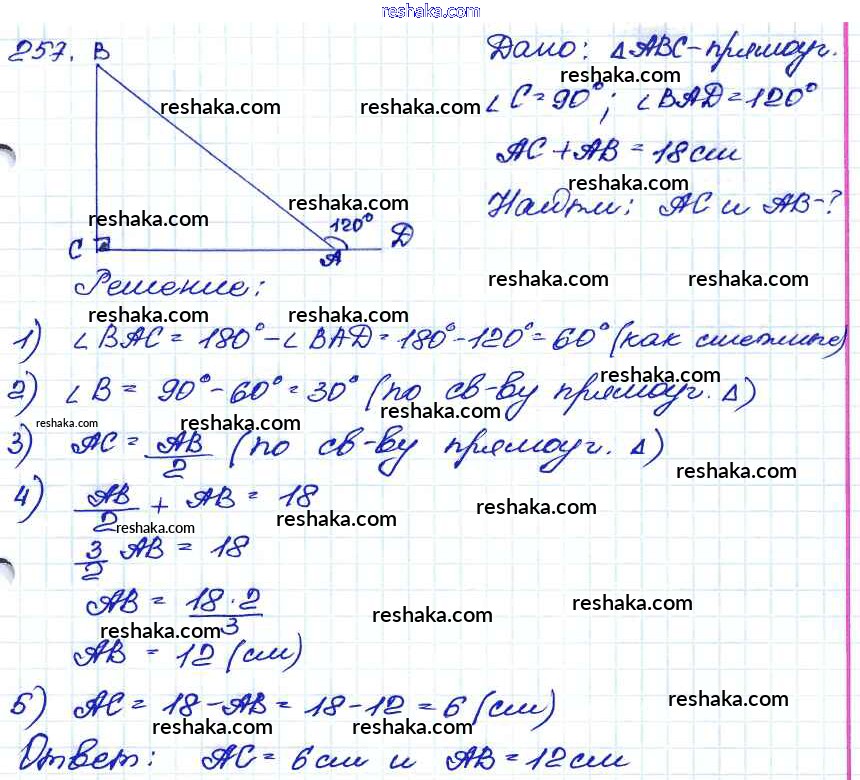 reshaka.com
257. B
Дано: △ABC-прямоуг.
∠C=90°; ∠BAD=120°
AC+AB=18см
Найти: AC и AB-?
120°
C A D
Решение:
1) ∠BAC=180°-∠BAD=180°-120°=60° (как смежные)
2) ∠B=90°-60°=30° (по св-ву прямоуг. △)
3) AC=AB/2 (по св-ву прямоуг. △)
4) AB/2+AB=18
3/2 AB=18
AB=18·2/3
AB=12 (см)
5) AC=18-AB=18-12=6 (см)
Ответ: AC=6см и AB=12см
reshaka.com reshaka.com reshaka.com
reshaka.com reshaka.com reshaka.com
reshaka.com reshaka.com
reshaka.com reshaka.com reshaka.com
reshaka.com
reshaka.com reshaka.com
reshaka.com
reshaka.com reshaka.com reshaka.com
reshaka.com reshaka.com
reshaka.com
reshaka.com reshaka.com reshaka.com